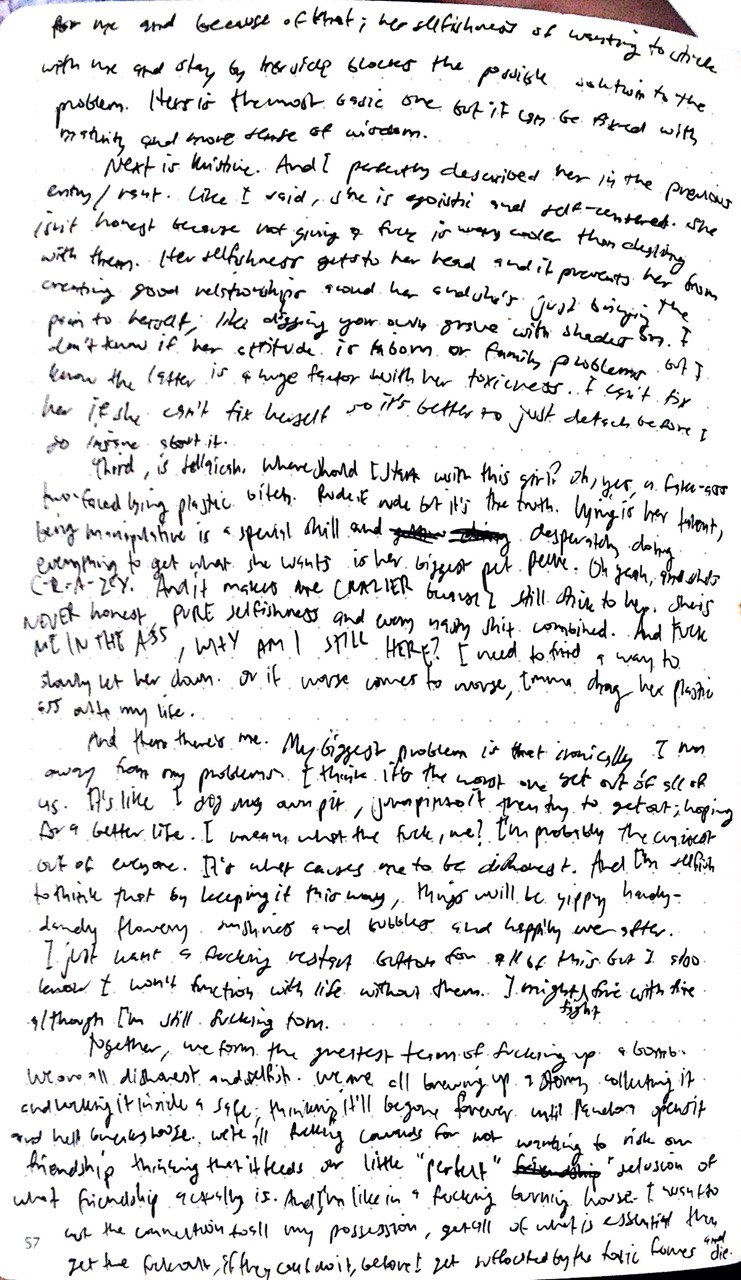 for me and because of that; her selfishness of wanting to stick
with me and stay by her side blocks the possible solution to the
problem. Hers is the most basic one but it can be fixed with
maturity and more sense of wisdom.
Next is Kristine. And I perfectly described her in the previous
entry/rant. Like I said, she is egoistic and self-centered. She
isn't honest because not giving a fuck is way cooler than dealing
with them. Her selfishness gets to her head and it prevents her from
creating good relationships around her and she's just bringing the
pain to herself; like digging your own grave with shades on. I
don't know if her attitude is inborn or family problems but I
know the latter is a huge factor with her toxicness. I can't fix
her if she can't fix herself so it's better to just detach before I
go insane about it.
Third, is Where should I start with this girl? Oh, yes, a fake-ass
two-faced lying plastic bitch. Rude if rude but it's the truth. Lying is her talent,
being manipulative is a special skill and desperately doing
everything to get what she wants is her biggest pet peeve. Oh yeah, and she's
C-R-A-Z-Y. And it makes me CRAZIER because I still stick to her. She is
NEVER honest, PURE selfishness and every nasty shit combined. And FUCK
ME IN THE ASS, WHY AM I STILL HERE? I need to find a way to
slowly let her down. Or if worse comes to worse, Imma drag her plastic
ass outta my life.
And then there's me. My biggest problem is that ironically I run
away from my problems. I think it's the worst one yet out of all of
us. It's like I dig my own pit, jump into it, then try to get out; hoping
for a better life. I mean what the fuck, me? I'm probably the
out of everyone. It's what causes me to be dishonest. And I'm selfish
to think that by keeping it this way, things will be yippy handy-
dandy flowery sunshines and bubbles and happily ever after.
I just want a fucking restart button for all of this but I also
know I won't function with life without them. I might fight fire with fire
although I'm still fucking torn.
Together, we form the greatest team of fucking up a bomb.
We are all dishonest and selfish. We are all brewing up a storm, collecting it
and locking it inside a safe; thinking it'll be gone forever until Pandora opens it
and hell breaks loose. We're all fucking cowards for not wanting to risk our
friendship thinking that it feeds our little "perfect" delusion of
what friendship actually is. And I'm like in a fucking burning house. I want to
cut the connection to all my possession, get all of what is essential then
get the fuck out, if they could do it, before I get suffocated by the toxic fumes and die.
57